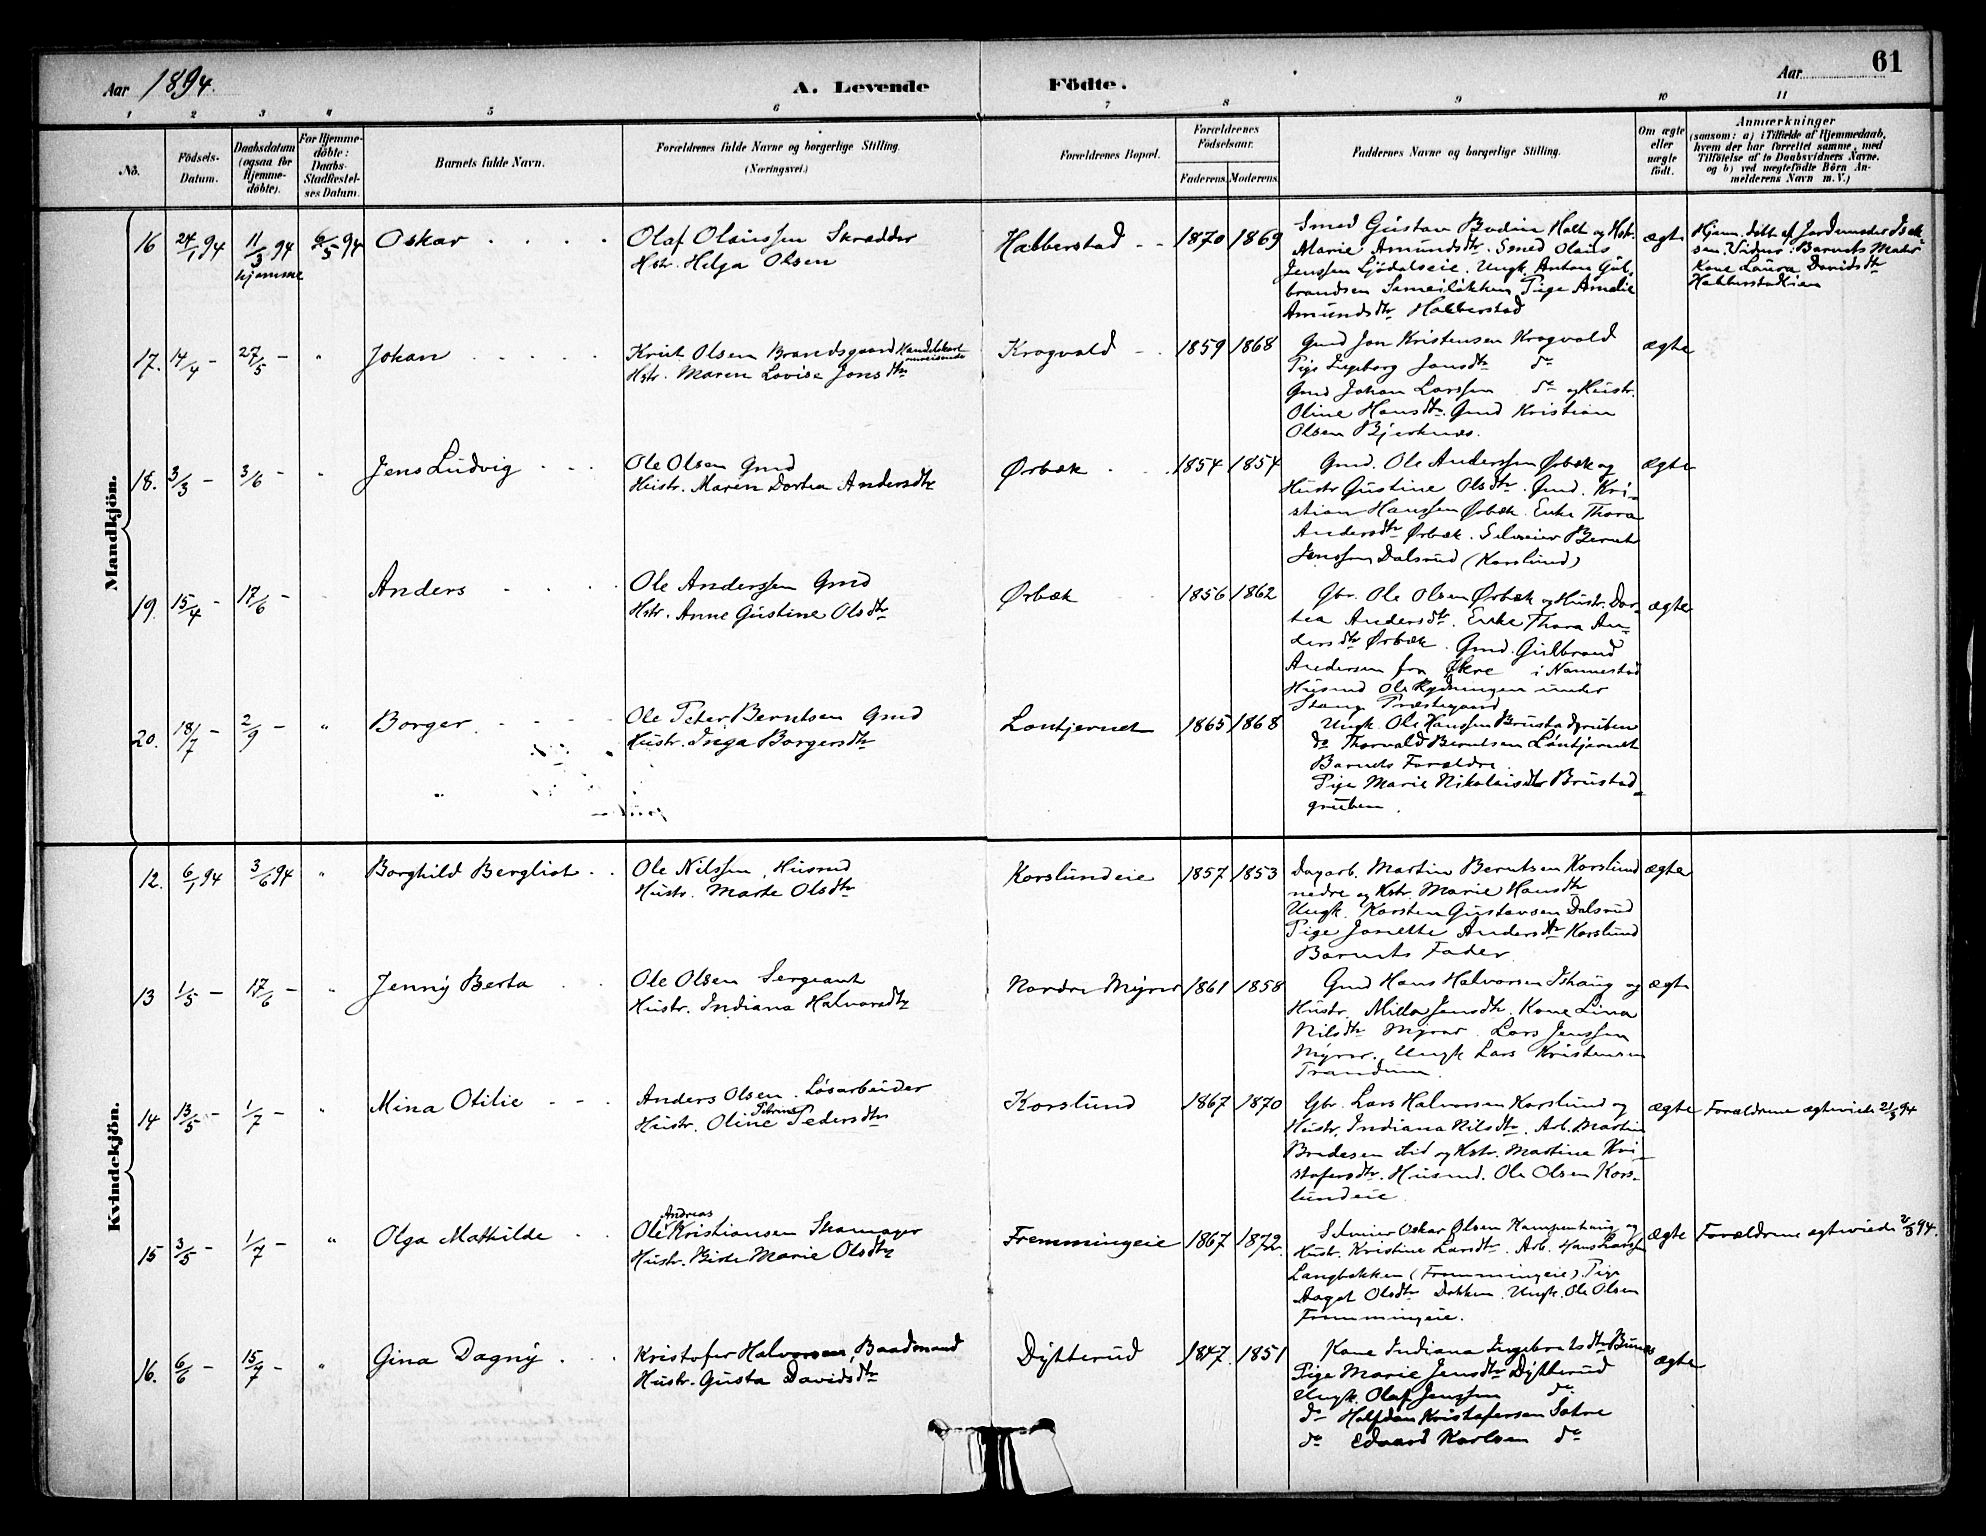 61
Aar 1894.
A. Levende Födte.
Aar
1 2 3 4 5 6 7 8 9 10 11
No.
Födsels-Datum.
Daabsdatum (ogsaa for Hjemme-döbte).
For Hjemme-döbte: Daabs-Stadfæstel-ses Datum.
Barnets fulde Navn.
Forældrenes fulde Navne og borgerlige Stilling.
(Næringsvei.)
Forældrenes Bopæl.
Forældrenes Födselsaar.
Faderens. Moderens.
Faddernes Navne og borgerlige Stilling.
Om ægte eller uægte födt.
Anmærkninger
(saasom: a) i Tilfælde af Hjemmedaab,
hvem der har forrettet samme, med
Tilföielse af to Daabsvidners Navne,
og b) ved uægtefödte Börn An-
melderens Navn m. V.)
Mandkjön.
16 24/1 94 11/3 94 hjemme 6/5 94 Oskar
Olaf Olaussen Skrædder
Hstr. Helga Olsen
Habberstad 1870 1869
Smed Gustav Bodin Holt og Hstr.
Marie Amundsdtr. Smed Olaus
Jenssen Ljödalseie. Ungk. Anton Gul-
brandsen Pige Amelie
Amundsdtr Habberstad
ægte
Hjem. döbt af Jordemoder
Vidner: Barnets Moder
Kone Laura Davidsdtr
Habberstad
17. 14/4 – 27/5 – " Johan
Krist Olsen Brandsgaard
Hstr. Maren Lovise Jonsdtr
Krogvold 1859 1868
Gmd Jon Kristensen Krogvold
Pige Ingeborg Jonsdtr do
Gmd Johan Larssen do og Hustr.
Oline Hansdtr. Gmd Kristian
Olsen Bjerknæs.
ægte
18. 3/3 – 3/6 – " Jens Ludvig
Ole Olsen Gmd
Hustr. Maren Dortea Andersdtr
Ørbæk 1854 1854
Gmd. Ole Anderssen Ørbæk og
Hustr Gustine Olsdtr. Gmd. Kri-
stian Hanssen Ørbæk. Enke Thora
Andersdtr Ørbæk. Selveier Bernt
Jenssen Dalsrud (Korslund)
ægte
19. 15/4 – 17/6 – Anders
Ole Anderssen Gmd
Hstr. Anne Gustine Olsdtr
Ørbæk 1856 1862
Gbr. Ole Olsen Ørbæk og Hustr. Dor-
tea Andersdtr. Enke Thora An-
dersdtr Ørbæk. Gmd. Gulbrand
Andersen fra Økre i Nannestad
Husmd Ole Rydningen under
Stange Præstegaard
ægte
20. 18/7 – 2/9 – " Borger
Ole Peter Berntsen Gmd
Hustr. Inga Borgersdtr
Lontjernet 1865 1868
Ungk. Ole Hanssen Brustadgruben
do Thorvald Berntsen Lontjernet
Barnets Forældre.
Pige Marie Nikolaisdtr Brustad-
gruben.
Kvindekjön.
12. 6/1 94 3/6 94 " Borghild Bergliot
Ole Nilssen, Husmd
Hustr. Marte Olsdtr
Korslundeie 1857 1853
Dagarb. Martin Berntsen Korslund
nedre og Hstr. Marie Hansdtr
Ungk. Karsten Gustavsen Dalsrud
Pige Janette Andersdtr Korslund
Barnets Fader.
ægte
13 1/5 – 17/6 – " Jenny Berta
Ole Olsen Sergeant
Hustr. Indiana Halvorsdtr
Nordre Myrer 1861 1858
Gmd Hans Halvorsen og
Hustr. Milla Jensdtr. Kone Lina
Nilsdtr Myrer. Lars Jenssen
Myrer. Ungk Lars Kristensen
Trandum.
ægte
14 13/5 – 1/7 – " Mina Otilie
Anders Olsen. Løsarbeider
Hustr. Oline Petrine Pedersdtr
Korslund 1867 1870
Gbr. Lars Halvorsen Korslund og
Hustr. Indiana Nilsdtr. Arb. Martin
Bredesen ibid og Hstr. Martina Kri-
stofersdtr. Husmd. Ole Olsen Kors-
lundeie.
ægte
Forældrene ægteviede 21/3 94
15 3/5 – 1/7 – " Olga Mathilde
Ole Andreas Kristiansen Skomager
Hustr. Birte Marie Olsdtr
Fremmingeie 1867 1872
Selveier Oskar Olsen Hampenhaug og
Hustr. Kristine Larsdtr. Arb. Hans Larssen
Langbakken (Fremmingeie). Pige
Aagot Olsdtr Dokken. Ungk. Ole Olsen
Fremmingeie.
ægte
Forældrene ægteviede 2/3 94.
16. 6/6 – 15/7 – " Gina Dagny
Kristofer Halvorsen, Baadmand
Hustr. Gusta Davidsdtr
Dytterud 1847 1851
Kone Indiana Ingebretsdtr Bunæs
Pige Marie Jensdtr Dytterud
Ungk. Olaf Jenssen do
do Halfdan Kristofersen
do Edvard Karlsen do
ægte